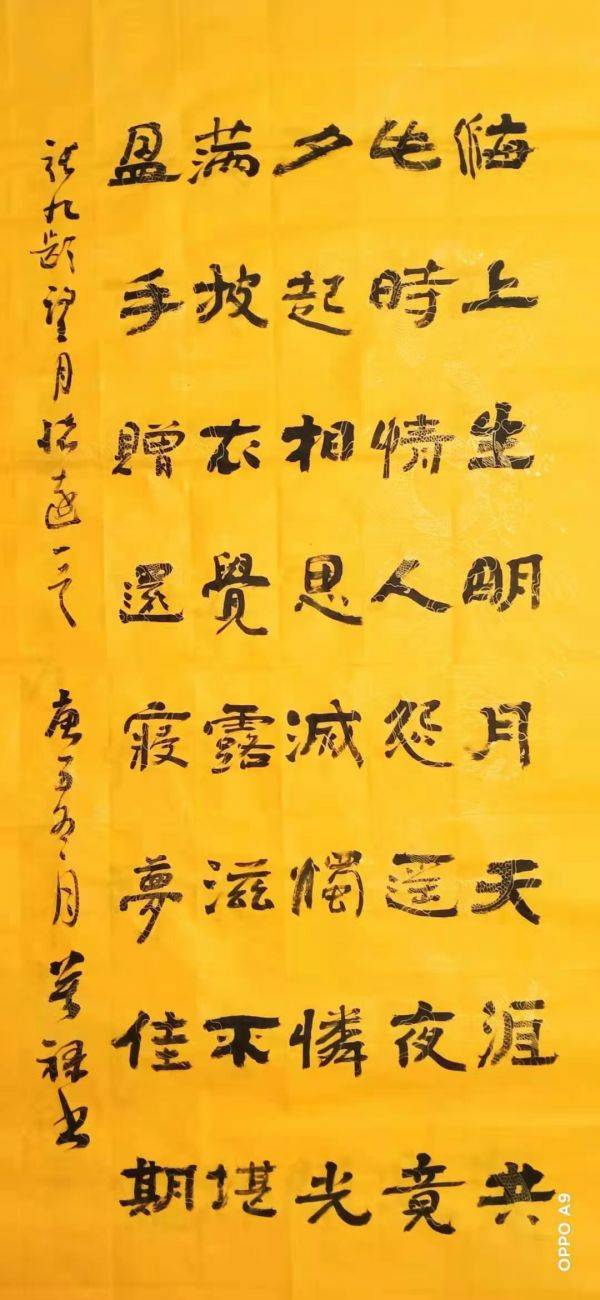 海上生明月天涯共
此時情人怨遥夜竟
夕起相思滅燭憐光
满披衣覺露滋不堪
盈手贈還寢夢佳期
张九龄望月怀遠一首 庚子冬月 禄书
OPPO A9